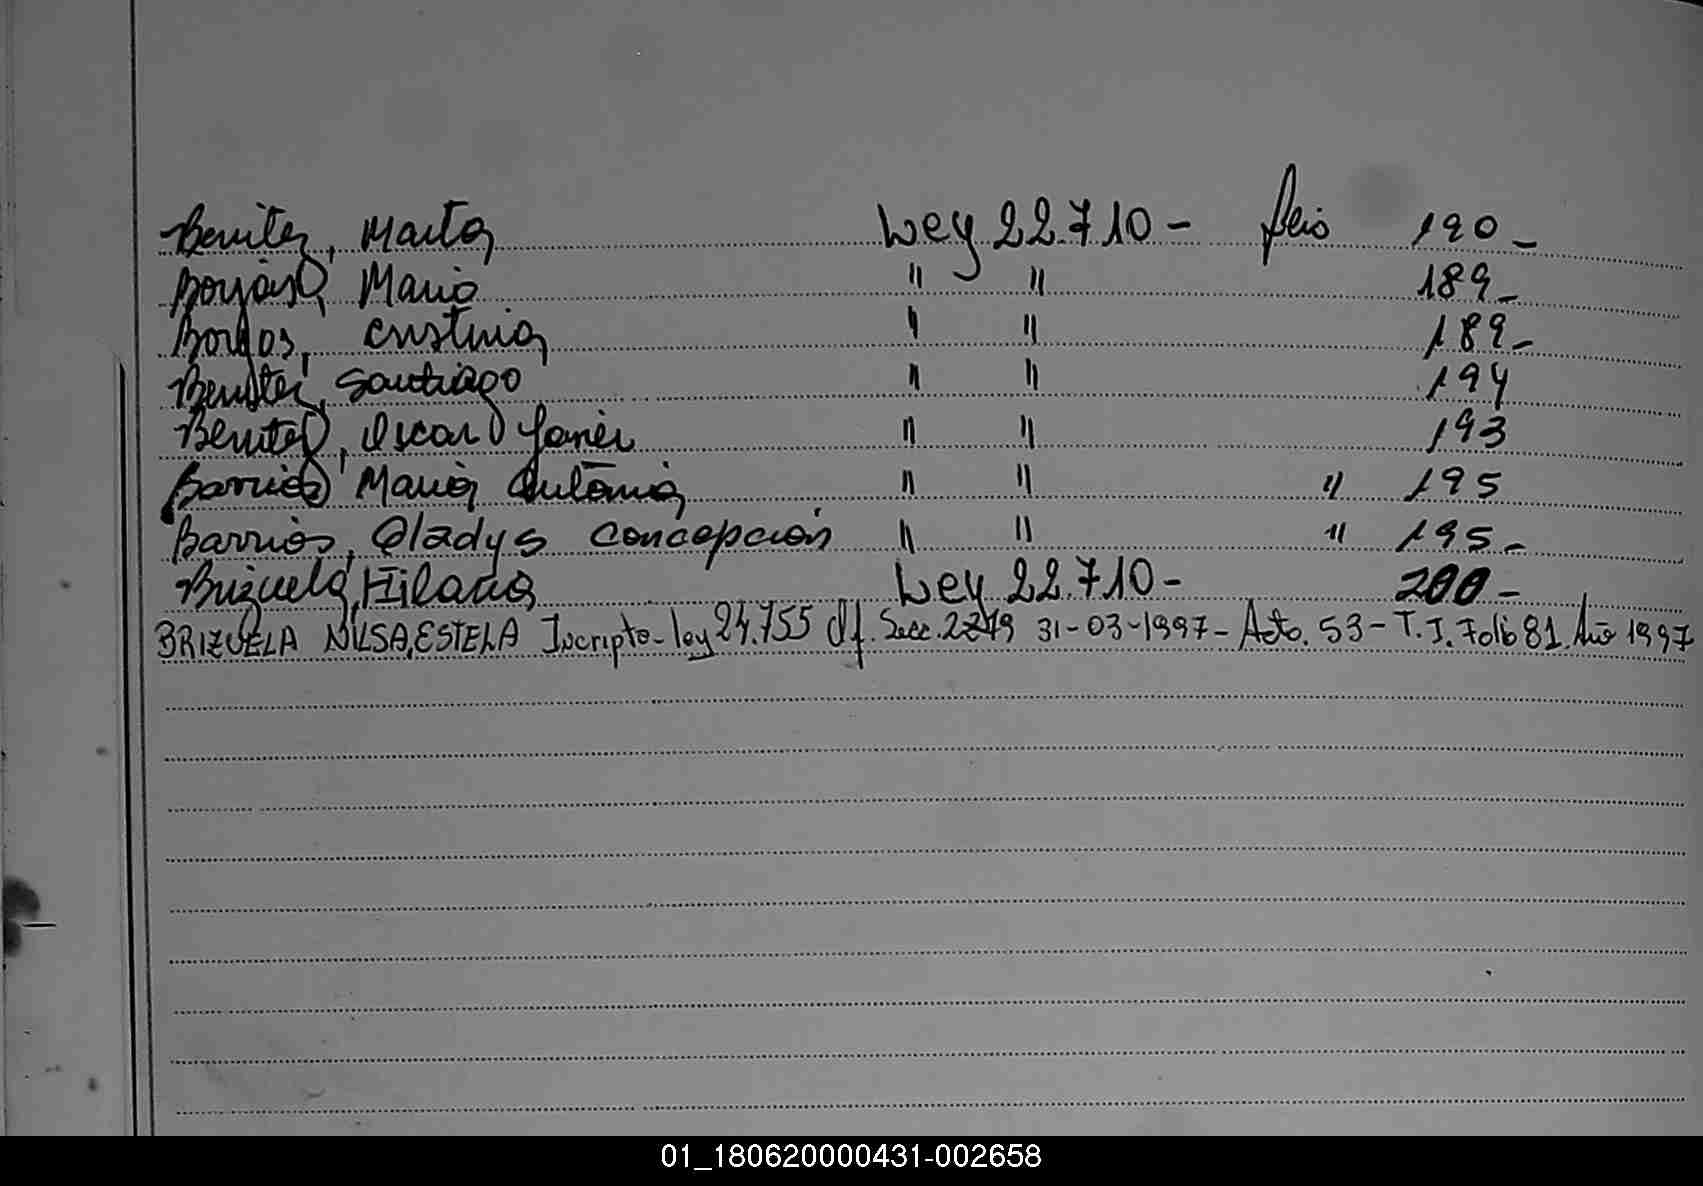 Benitez, Marta Ley 22.710- folio 190-
Borjas, Maria " " 189-
Borjas, Cristina " " 189-
Benitez, Santiago " " 194
Benitez, Oscar Javier " " 193
Barrios Maria Antonia " " " 195
Barrios, Gladys Concepción " " " 195-
Brizuela, Hilaria Ley 22.710- 200-
BRIZUELA NILSA, ESTELA Inscripto-ley 24.755 Of. Secc. 2249 31-03-1997- Acto. 53- T. I. Folio 81. Año 1997
01_180620000431-002658